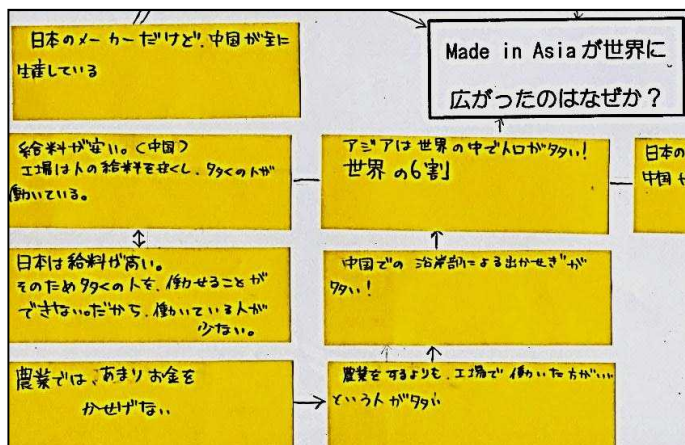 日本のメーカーだけど、中国が主に
生産している
Made in Asiaが世界に
広がったのはなぜか？
給料が安い。(中国)
工場は人の給料を安くし、多くの人が
働いている。
アジアは世界の中で人口が多い!
世界の6割
日本の
中国や
日本は給料が高い。
そのため多くの人を、働かせることが
できない。だから、働いている人が
少ない。
中国での沿岸部による出かせぎが
多い!
農業では、あまりお金を
かせげない
農業をするよりも、工場で働いた方がいい
という人が多い